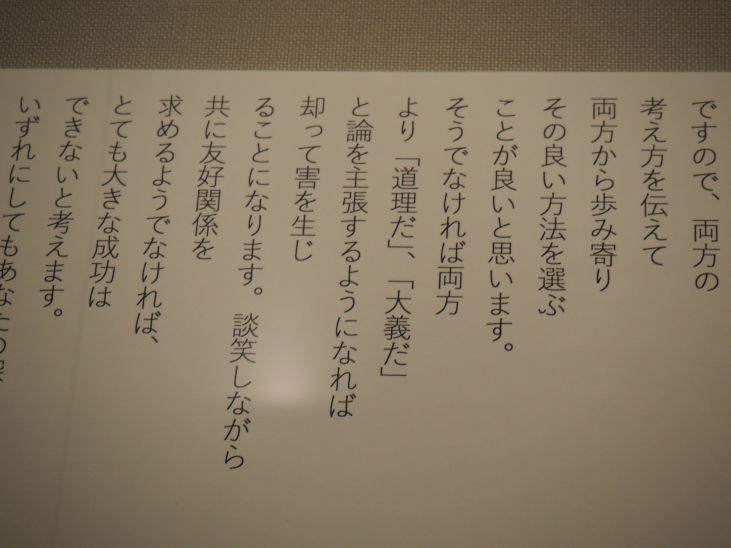 ですので、両方の
考え方を伝えて
両方から歩み寄り
その良い方法を選ぶ
ことが良いと思います。
そうでなければ両方
より「道理だ」、「大義だ」
と論を主張するようになれば
却って害を生じ
ることになります。談笑しながら
共に友好関係を
求めるようでなければ、
とても大きな成功は
できないと考えます。
いずれにしてもあなたの深